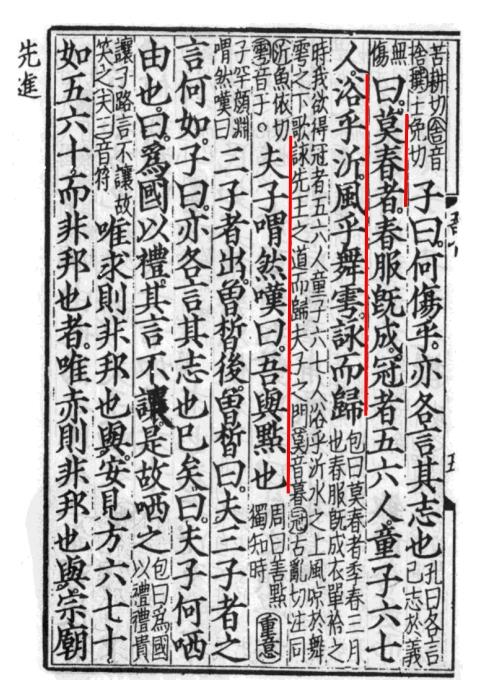 苦耕切舍音捨撰士免切子曰。何傷乎。亦各言其志也孔曰各言己志於義
無傷曰。莫春者。春服既成。冠者五六人。童子六七
人。浴乎沂。風乎舞雩。詠而歸包曰莫春者季春三月也春服既成衣單袷之
時我欲得冠者五六人童子六七人浴乎沂水之上風涼於舞雩之下歌詠先王之道而歸夫子之門莫音暮冠古亂切注同
沂魚依切雩音于。夫子喟然嘆曰。吾與點也周曰善點獨知時重意
子罕顏淵喟然嘆曰三子者出。曾皙後。曾皙曰。夫三子者之
言何如。子曰。亦各言其志也已矣。曰。夫子何哂
由也。曰。爲國以禮。其言不讓。是故哂之包曰爲國以禮禮貴
讓子路言不讓故笑之夫三音符唯求則非邦也與。安見方六七十
如五六十。而非邦也者。唯赤則非邦也與。宗廟
先進